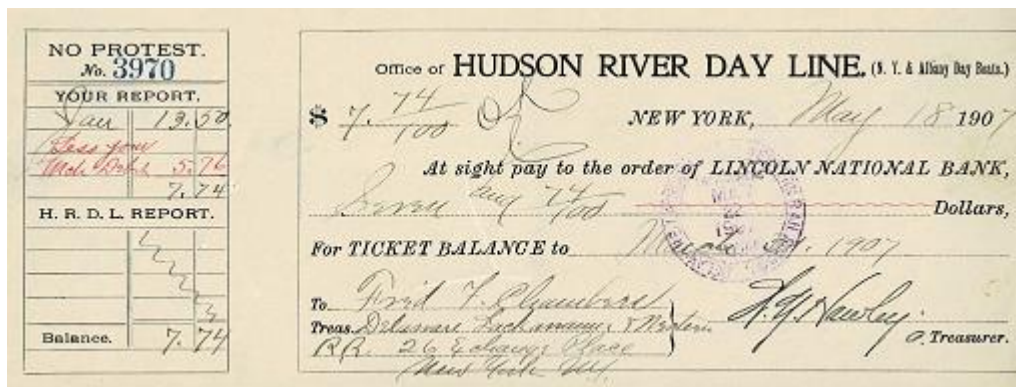 NO PROTEST.
No. 3970
YOUR REPORT.
Jan 13.50
Less your
5.76
7.74
H. R. D. L. REPORT.
Balance. 7.74
Office of HUDSON RIVER DAY LINE. (N. Y. & Albany Day Boats.)
$ 7. 74/100 NEW YORK, May 18 1907
At sight pay to the order of LINCOLN NATIONAL BANK,
Seven and 74/100 Dollars,
For TICKET BALANCE to 1907
To Fred F. Chambers
Treas. Delaware Lackawanna & Western
R.R. 26 Exchange Place
New York
Treasurer.